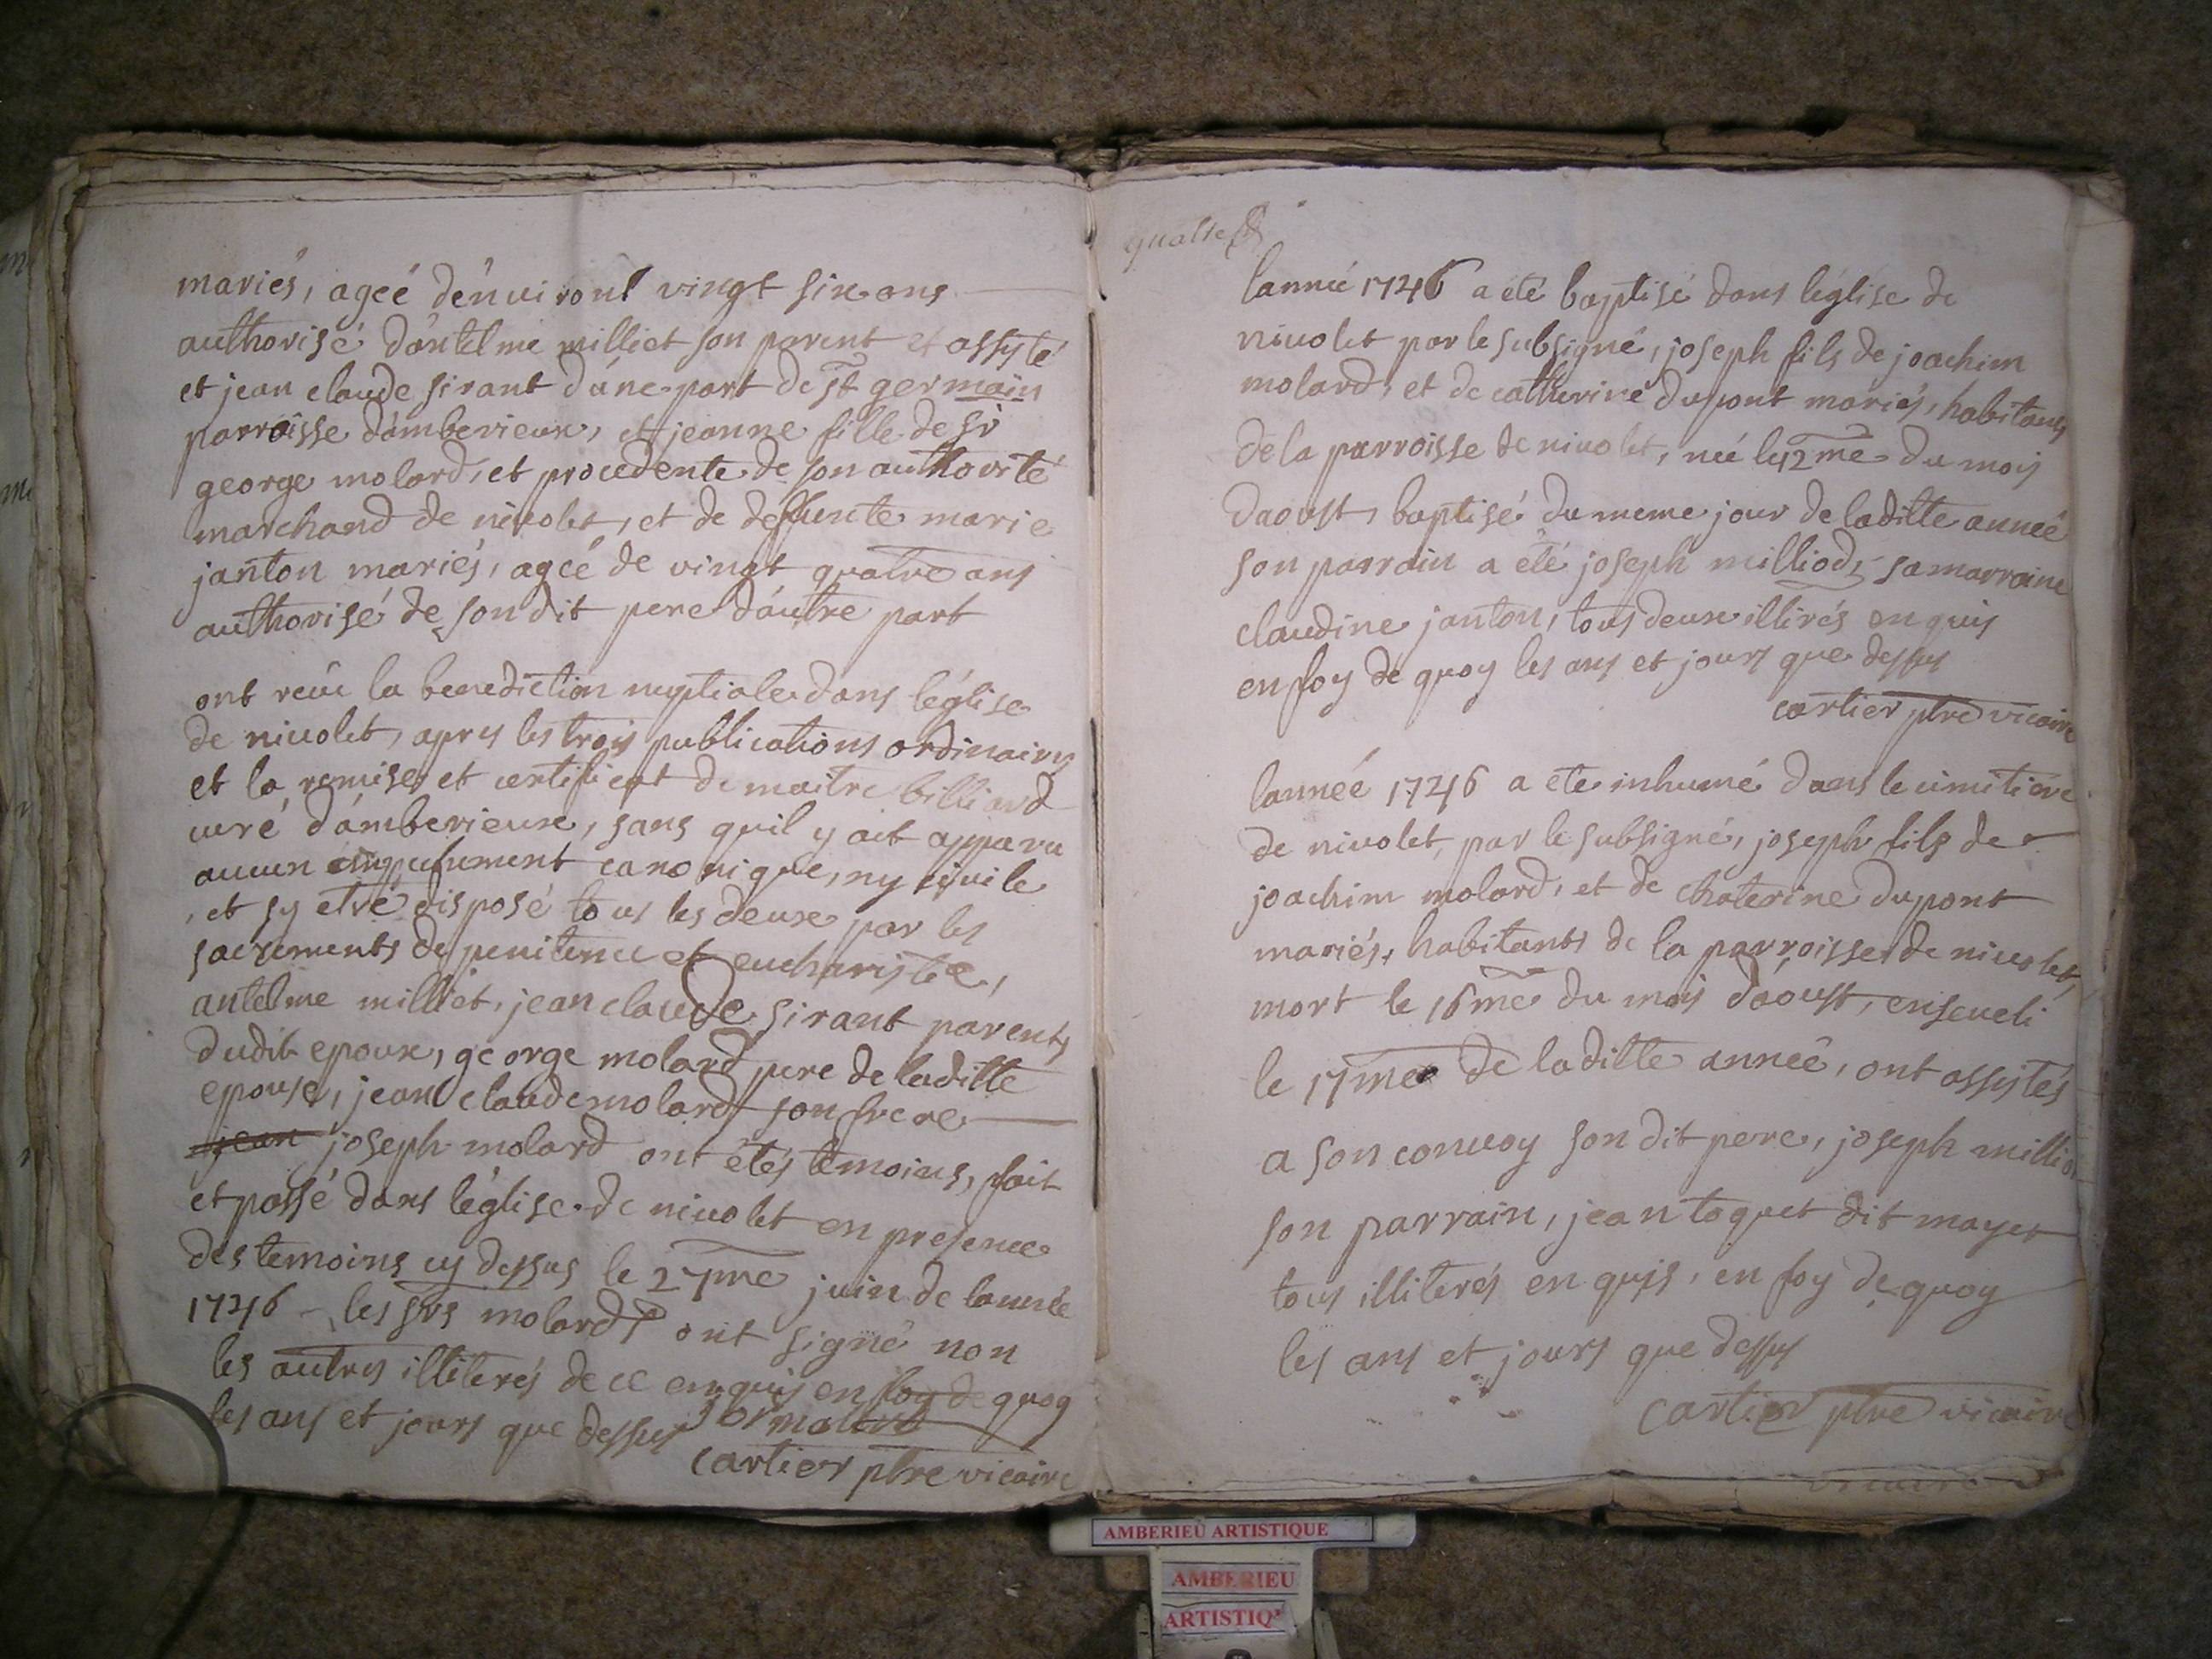 mariés, ageé dénuiront vingt six ans
authorisé dántelme milliet son parent et assyté
et jean claude sirant dúne part de st germain
parroisse dámberieux, et jeanne fille de sr
george molard, et procedente de son authorité
marchand de niuolet, et de deffunte marie
janton mariés, ageé de vingt quatre ans
authorisé de son dit pere dáutre part
ont recúe la benediction nuptiale dans léglise
de niuolet, apres les trois publications ordinaires
et la remise et certificat de maitre billiard
curé dámberieux, sans quil y ait apparu
aucun empechement canonique, ny ciuile
, et sy etré disposé tous les deux par les
sacrements de penitence et eucharistie,
antelme milliet, jean claude sirant parents
dudit epoux, george molard pere de laditte
epouse, jean claude molard son frere
jean joseph molard ont étés témoins, fait
et passé dans léglise de niuolet en presence
des temoins cy dessus le 27me juin de lanneé
1746 les srs molards ont signé non
les autres illiterés de ce enquis en foy de quoy
les ans et jours que dessus molard
cartier ptre vicaire
quatre
lanneé 1746 a eté baptisé dans léglise de
niuolet par le subsigné, joseph fils de joachim
molard, et de catherine dupont mariés, habitants
de la parroisse de niuolet, né le 12me du mois
daoust, baptisé du meme jour de laditte anneé
son parrain a été joseph milliod, sa marraine
claudine janton, tous deux illirés enquis
en foy de quoy les ans et jours que dessus
cartier ptre vicaire
lanneé 1746 a ete inhumé dans le cimitiére
de niuolet, par le subsigné, joseph fils de
joachim molard, et de chaterine dupont
mariés, habitants de la parroisse de niuolet,
mort le 16me du mois dáoust, enseueli
le 17me de laditte anneé, ont assystés
a son conuoy son dit pere, joseph millio
son parrain, jean toquet dit mayet
tous illiterés enquis, en foy de quoy
les ans et jours que dessus
cartier ptre vicaire
vicaire
AMBERIEU ARTISTIQUE
AMBERIEU
ARTISTIQ